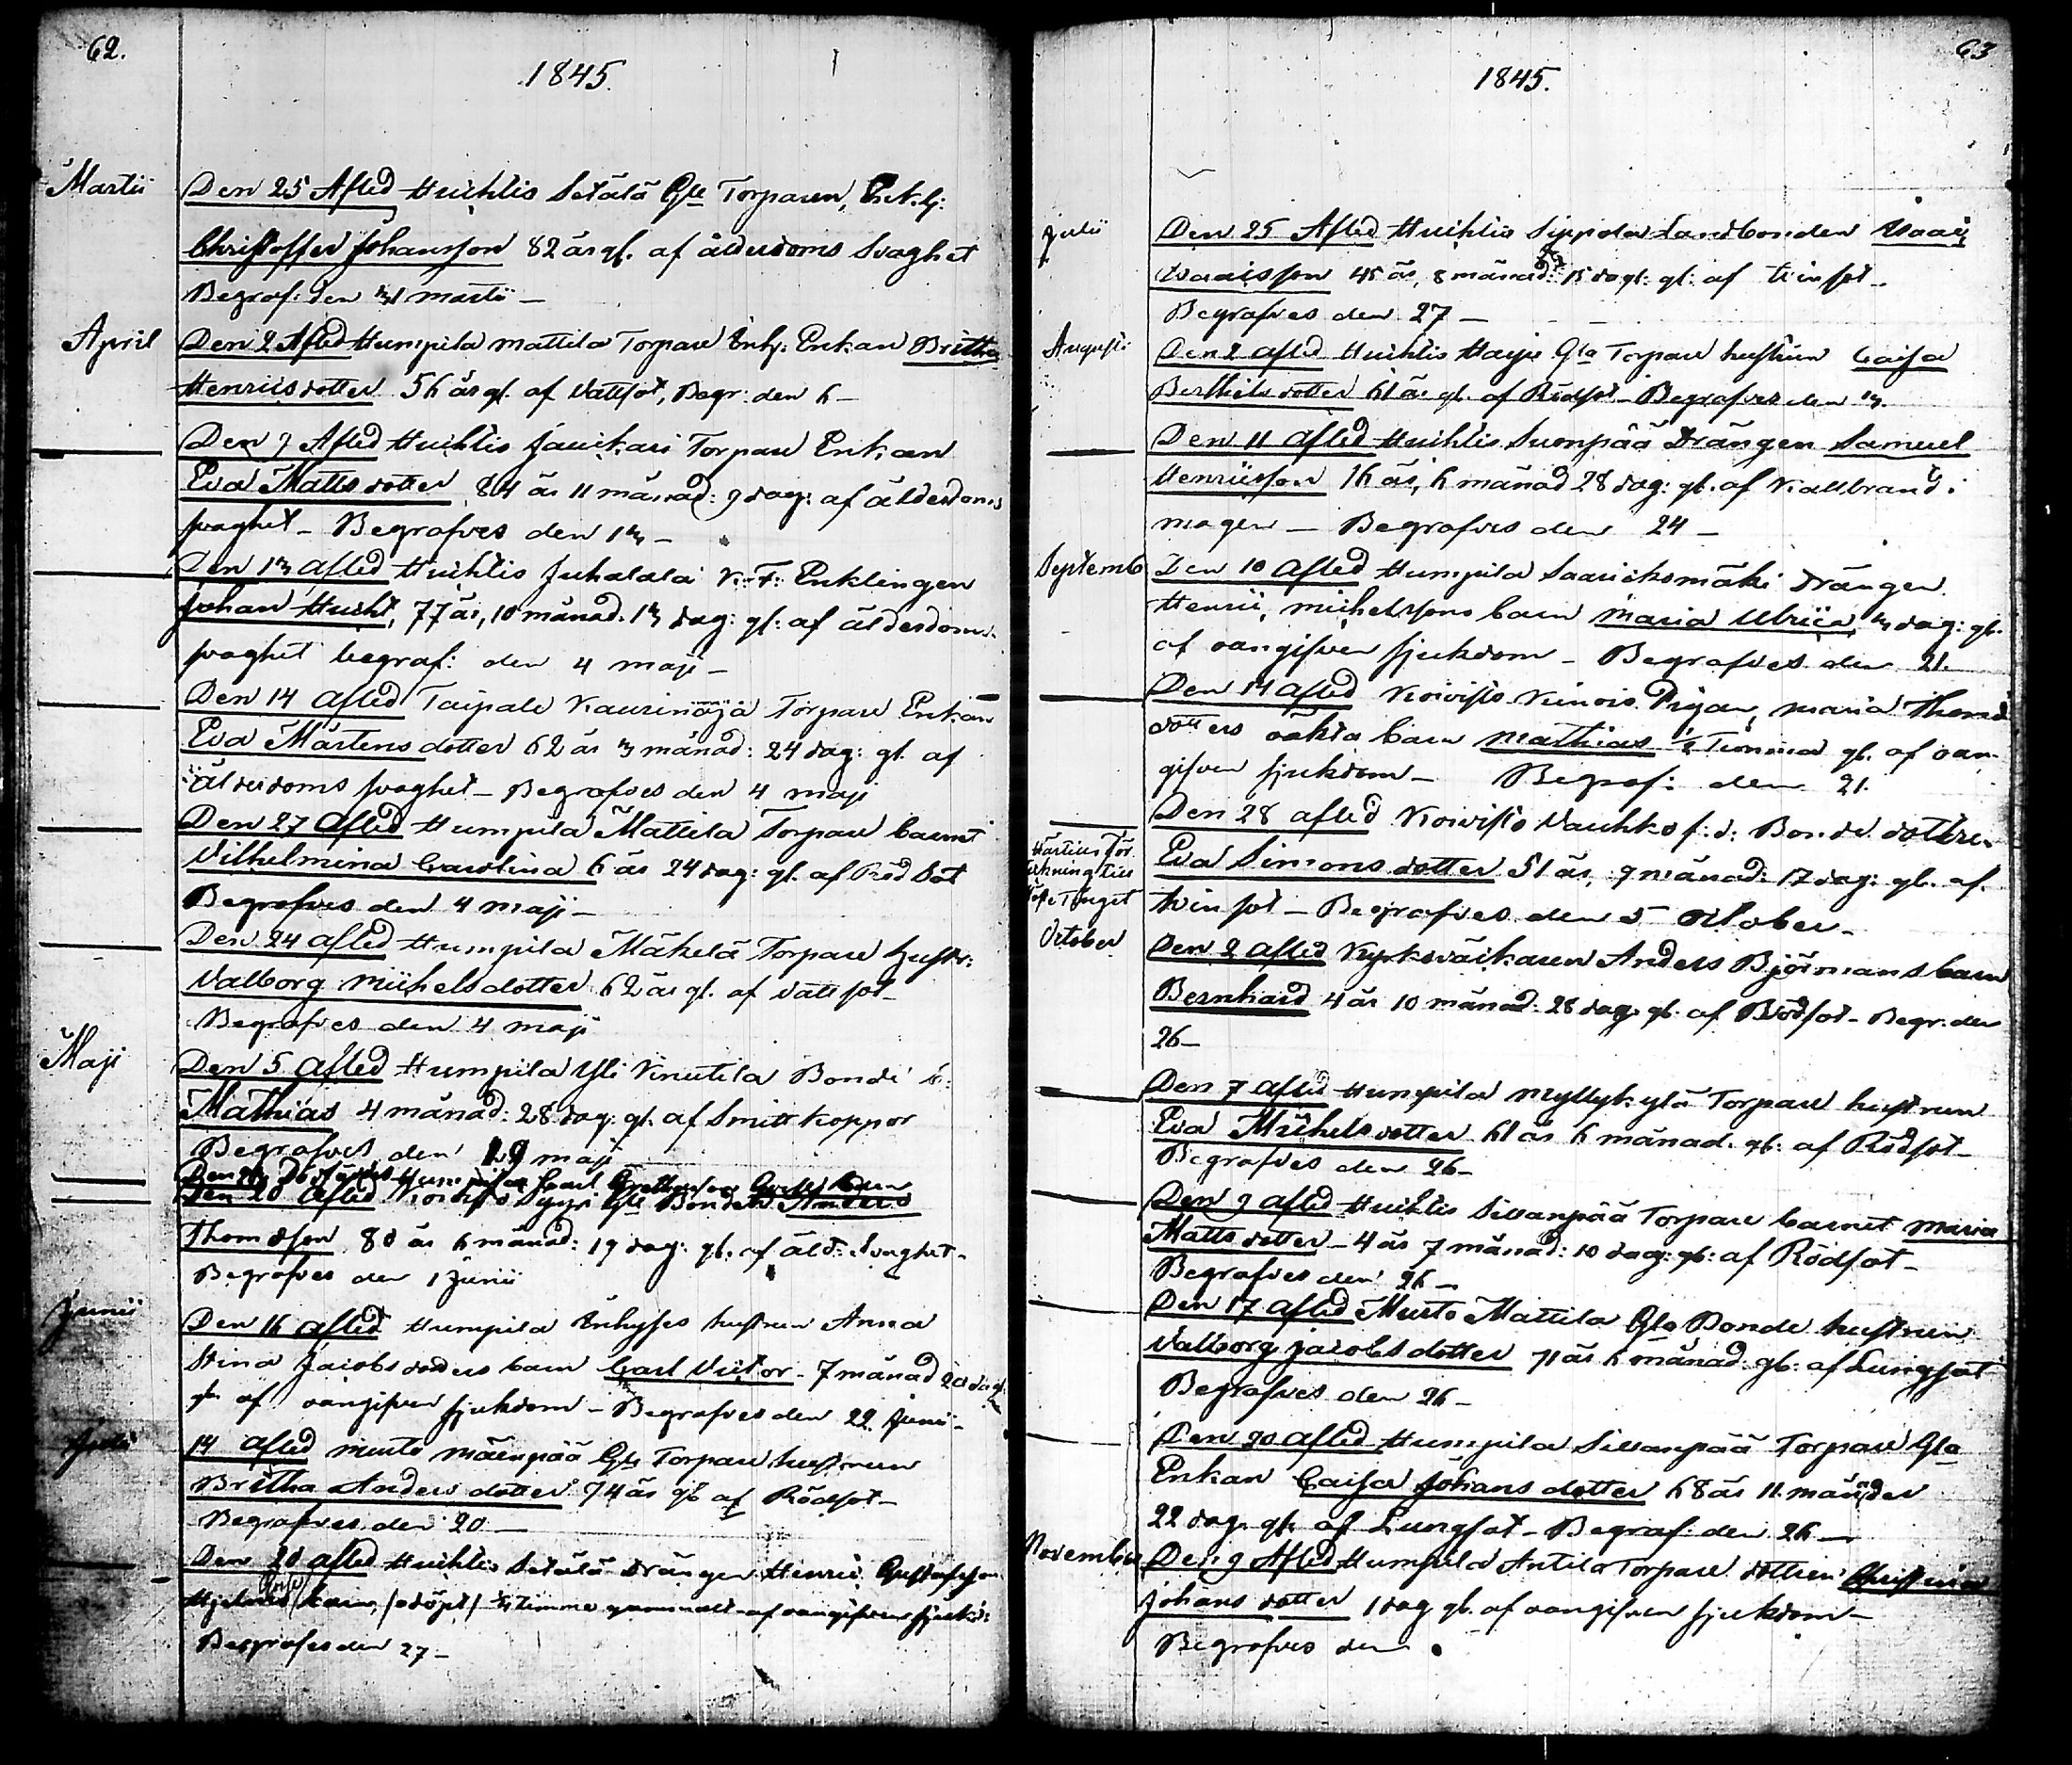 62.
1845.
Martii
Den 25 Afled Huihtis Setälä Gle Torparen, Enk.lg:
Christoffer Johansson 82 år gl. af ålderdoms Svaghet
Begraf: den martii –
April
Den 2 Afled Humpila Mattila Torpare Inh: Enkan Britha
Henricsdotter 56 år gl. af Vattsot, Begr: den 6 –
Den 9 Afled Huihtis Torpare Enkan
Eva Mattsdotter 84 år 11 månad: 9 dag: af ålderdoms
svaghet – Begrafves den 13 –
Den 13 Afled Huihtis Juhalala Enklingen
Johan Huiht, 77 år, 10 månad. 13 dag: gl: af ålderdoms
svaghet begraf: den 4 maji –
Den 14 Afled Taipale Kaurinoja Torpare Enkan
Eva Mårtensdotter 62 år 3 månad: 24 dag: gl. af
ålderdoms svaghet – Begrafves den 4 maji
Den 27 Afled Humpila Mattila Torpare barnet
Vilhelmina Carolina 6 år 24 dag: gl. af Röd Sot
Begrafves den 4 maji –
Den 24 Afled Humpila Mäkelä Torpare hustr:
Valborg Michelsdotter 62 år gl. af Vatt sot –
Begrafves den 4 maji
Maji
Den 5 Afled Humpila Yli Kinutila Bonde
Mathias 4 månad: 28 dag: gl. af Smitt koppor
Begrafves den 19 maji
Den Humpila Carl
Den 20 Afled Koivisto Gle Bonden Anders
Thomasson 80 år 6 månad: 19 dag: gl. af åld: Svaghet –
Begrafves den 1 Junii
Junii
Den 16 Afled Humpila Inhyses hustrun Anna
Stina Jacobsdotters barn Carl Victor – 7 månad 20 dag:
gl. af oangifven sjukdom – Begrafves den 22 Junii –
Julii
14 Afled Murto Mäenpää Gle Torpare hustrun
Britha Andersdotter 74 år gl af Rödsot –
Begrafves den 20 –
Den 20 Afled Huihtis Setälä Drängen Henric Gustafsson
Hjelms barn, /odöpt/ timme gammalt af oangifven sjukd:
Begrafves den 27 –
63
1845.
Julii
Den 25 Afled Huihtis Sippola Landbonden Isaac
Isaacsson 45 år, 8 månad: 15 dag: gl: af tvinsot –
Begrafves den 27 –
August:
Den 2 Afled Huihtis Harju Gla Torpare hustrun Caisa
Berthilsdotter 61 år gl. af Rödsot – Begrafves den
Den 11 Afled Huihtis Suonpää Drängen Samuel
Henricsson 16 år, 6 månad 28 dag: gl. af Kallbrand i
magen – Begrafves den 24 –
Septemb
Den 10 Afled Humpila Saaricksmäki Drängen
Henric Michelssons barn Maria Ulrica, 3 dag: gl.
af oangifven sjukdom – Begrafves den 21.
Den 14 Afled Koivisto Pigan, Maria Thomæ
dotters oäkta barn Mathias ½ Timma gl. af oan-
gifven sjukdom – Begraf: den 21.
Den 28 Afled Koivisto Vauhko f: d: Bonde dottren
Eva Simonsdotter 51 år, 9 månad: 17 dag: gl. af
tvin sot – Begrafves den 5 October –
October
Den 2 Afled Kyrkoväktaren Anders Björmans barn
Bernhard 4 år 10 månad: 28 dag gl. af Rödsot – Begr: den
26 –
Den 7 Afled Humpila Myllykylä Torpare hustrun
Eva Michelsdotter 61 år 6 månad. gl: af Rödsot –
Begrafves den 26 –
Den 9 Afled Huihtis Sillanpää Torpare barnet Maria
Mattsdotter – 4 år 7 månad: 10 dag: gl: af Rödsot –
Begrafves den 26 –
Den 17 Afled Murto Mattila Gla Bonde hustrun
Valborg Jacobsdotter 71 år 6 månad: gl: af Lungsot
Begrafves den 26 –
Den 20 Afled Humpila Sillanpää Torpare Gla
Enkan Caisa Johansdotter 68 år 11. månader
22 dag: gl. af Lungsot – Begraf: den 26 –
November
Den 9 Afled Humpila Antila Torpare dottren Christina
Johansdotter 1 dag gl. af oangifven sjukdom –
Begrafves den